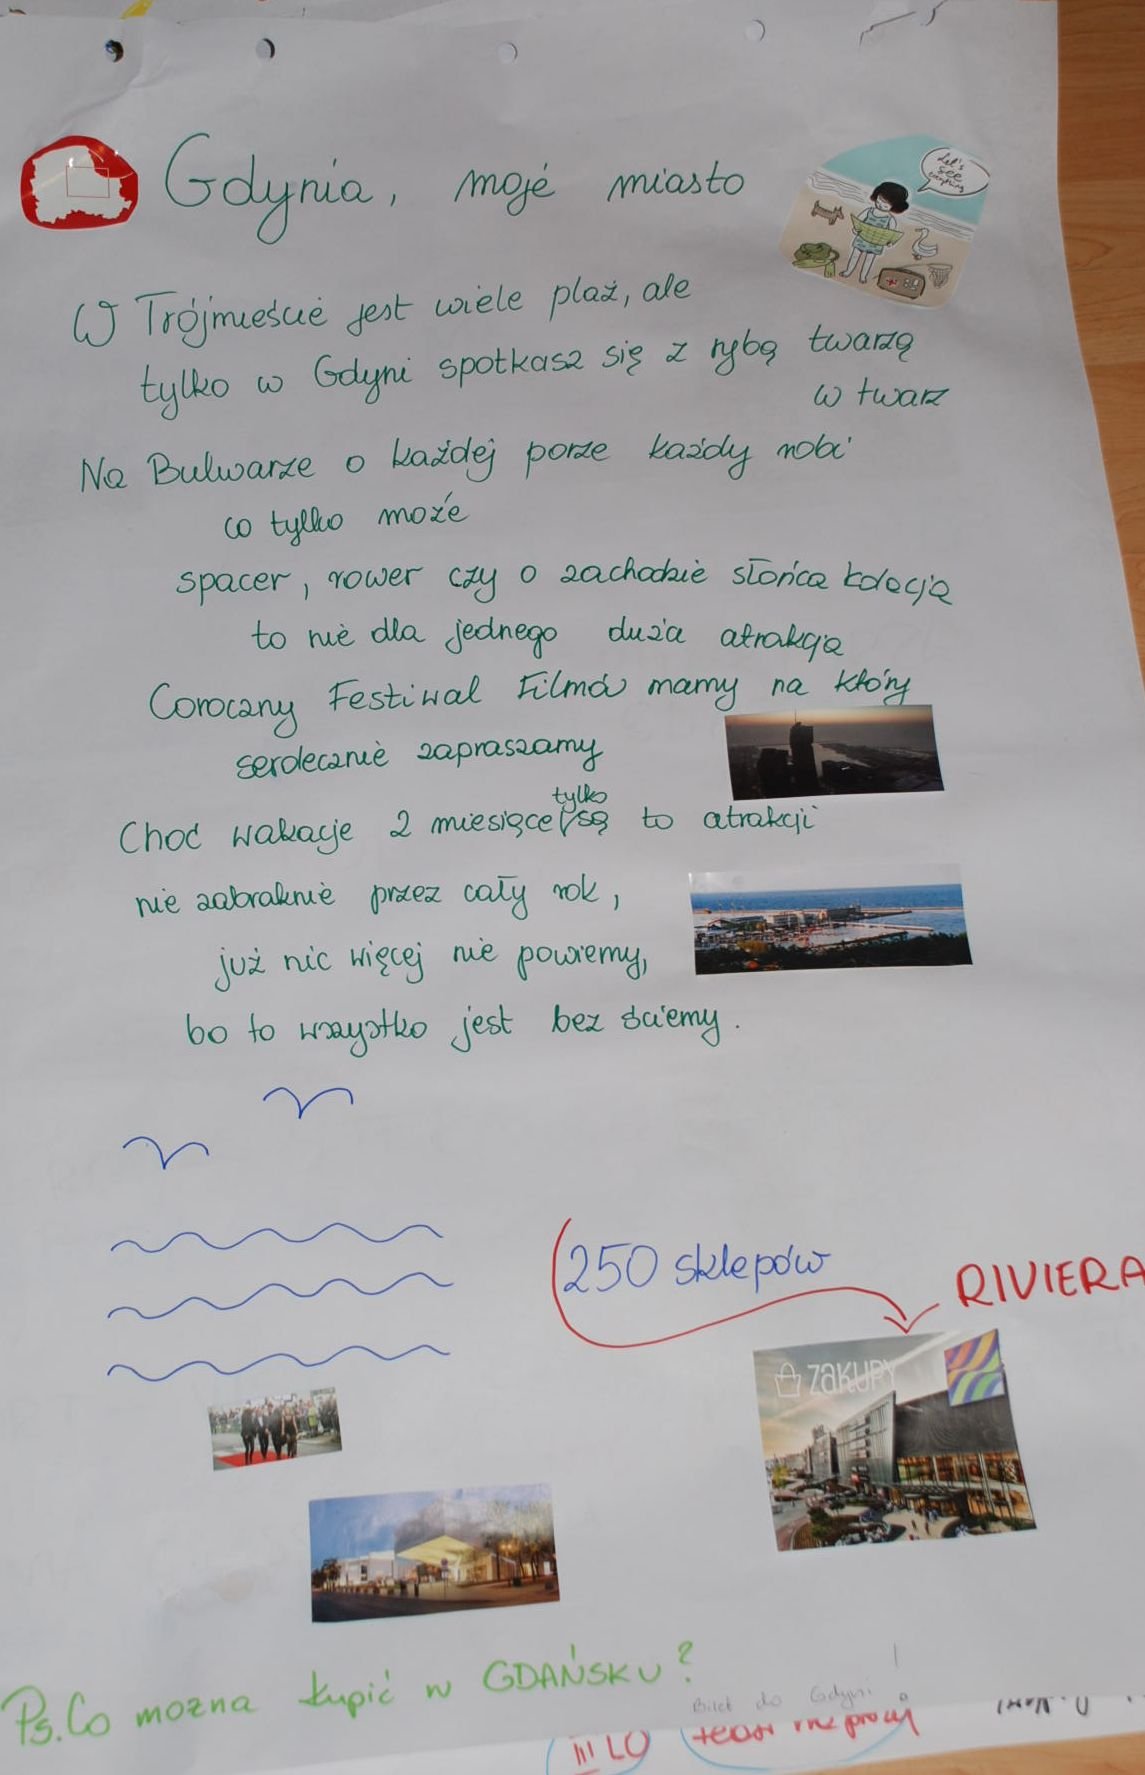 Gdynia, moje miasto
Let's see everything
W Trójmieście jest wiele plaż, ale
tylko w Gdyni spotkasz się z rybą twarzą
w twarz
Na Bulwarze o każdej porze każdy robi
co tylko może
spacer, rower czy o zachodzie słońca kolacja
to nie dla jednego duża atrakcja
Coroczny Festiwal Filmów mamy na który
serdecznie zapraszamy
Choć wakacje 2 miesiące tylko są to atrakcji
nie zabraknie przez cały rok,
już nic więcej nie powiemy,
bo to wszystko jest bez ściemy.
250 sklepów
RIVIERA
ZAKUPY
Ps. Co można kupić w GDAŃSKU?
Bilet do Gdyni!
III LO